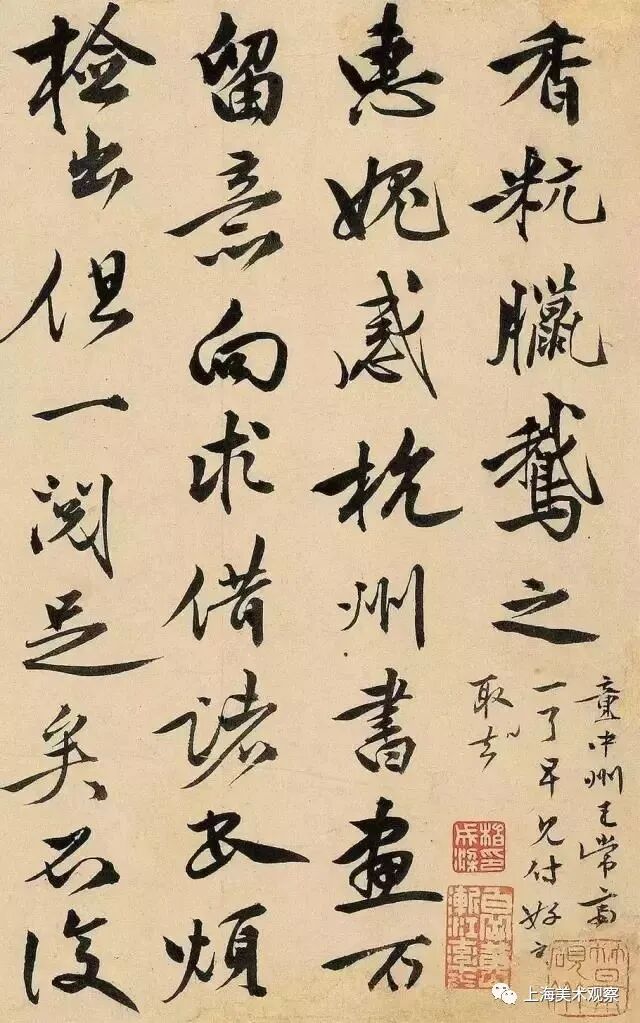 香粇臘鵞之
惠媿感杭州書畫不
留意向求借諸煩
檢出但一閱足矣不復
童中州
一了早兄付好
取
上海美术观察